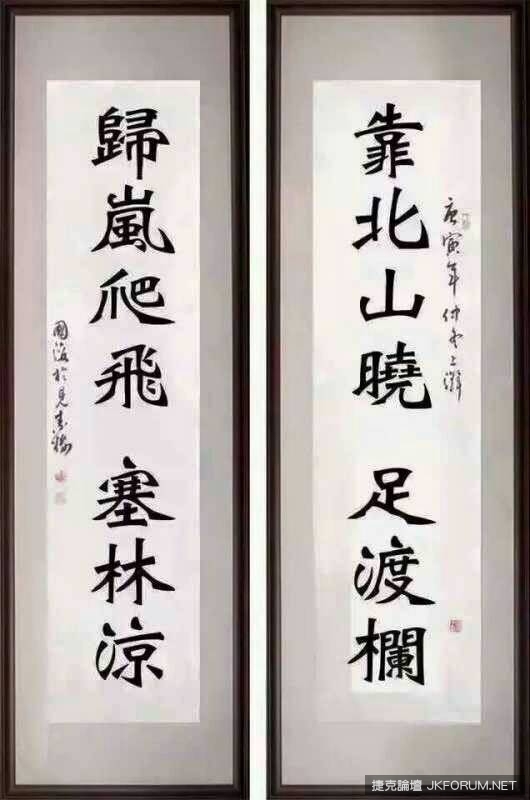 靠北山曉 足渡欄
庚寅年仲冬上澣
歸嵐爬飛 塞林涼
國
捷克論壇 JKFORUM.NET